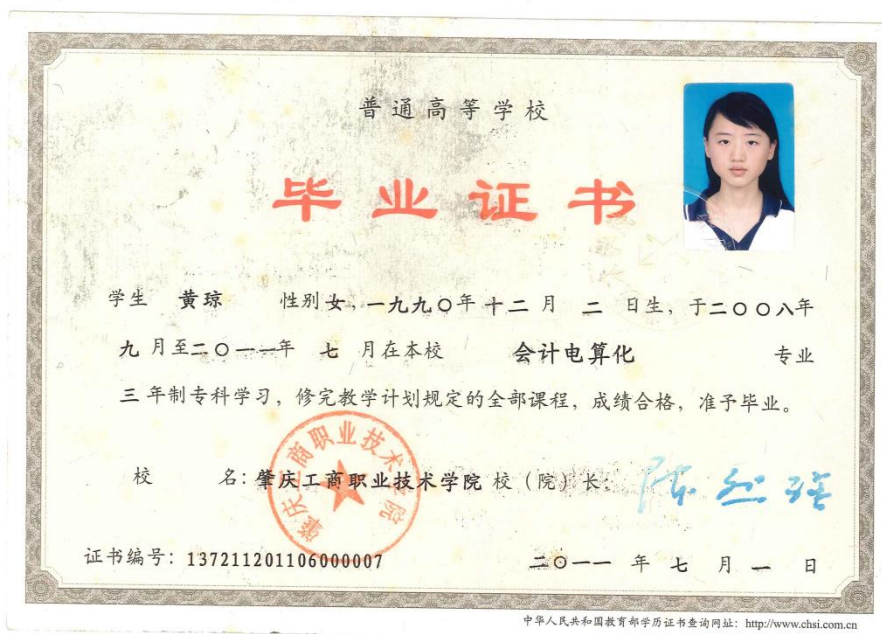 普通高等学校
毕业证书
学生 黄琼 性别 女，一九九〇年 十二 月 二 日生，于二〇〇八年
九 月至二〇一一年 七 月在本校 会计电算化 专业
三 年制专科学习，修完教学计划规定的全部课程，成绩合格，准予毕业。
校 名：肇庆工商职业技术学院 校（院）长：
肇庆工商职业技术学院
证书编号：137211201106000007 二〇一一 年 七 月 一 日
中华人民共和国教育部学历证书查询网址：http://www.chsi.com.cn